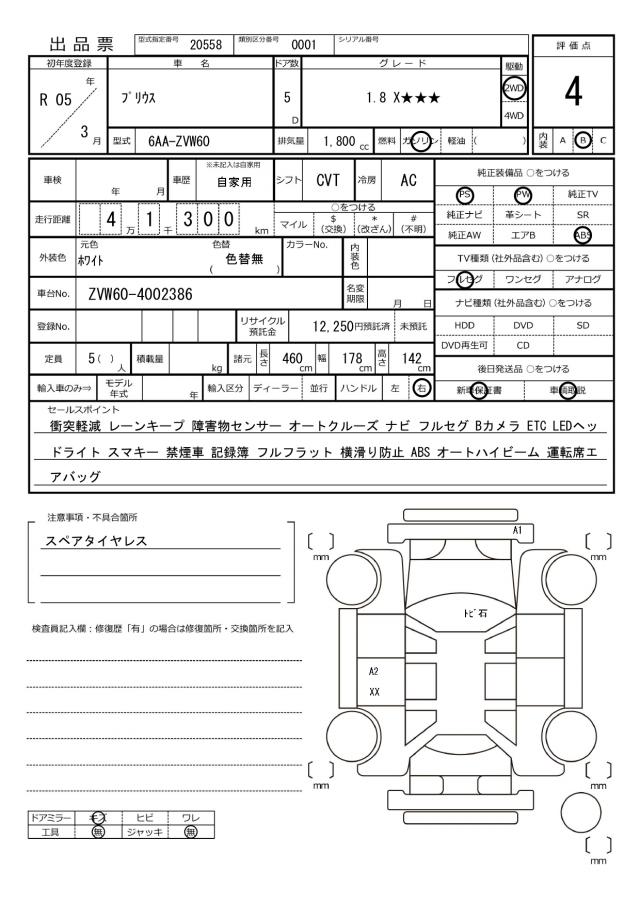 出品票 型式指定番号 20558 類別区分番号 0001 シリアル番号
評価点
4
内装 A B C
初年度登録 車名 ドア数 グレード 駆動
R 05 年 3 月 プリウス 5 D 1.8 X★★★ 2WD 4WD
型式 6AA-ZVW60 排気量 1,800 cc 燃料 ガソリン 軽油 ( )
車検 年 月 車歴 ※未記入は自家用 自家用 シフト CVT 冷房 AC
走行距離 4 万 1 千 3 0 0 km
○をつける
マイル $(交換) *(改ざん) #(不明)
外装色 元色 ホワイト 色替 ( 色替無 ) カラーNo. 内装色
車台No. ZVW60-4002386 名変期限 月 日
登録No. リサイクル預託金 12,250円預託済 未預託
定員 5( ) 人 積載量 kg 諸元 長さ 460 cm 幅 178 cm 高さ 142 cm
輸入車のみ⇒ モデル年式 年 輸入区分 ディーラー 並行 ハンドル 左 右
純正装備品 ○をつける
PS PW 純正TV
純正ナビ 革シート SR
純正AW エアB ABS
TV種類(社外品含む)○をつける
フルセグ ワンセグ アナログ
ナビ種類(社外品含む)○をつける
HDD DVD SD
DVD再生可 CD
後日発送品 ○をつける
新車保証書 車輌取説
セールスポイント
衝突軽減 レーンキープ 障害物センサー オートクルーズ ナビ フルセグ Bカメラ ETC LEDヘッ
ドライト スマキー 禁煙車 記録簿 フルフラット 横滑り防止 ABS オートハイビーム 運転席エ
アバッグ
注意事項・不具合箇所
スペアタイヤレス
検査員記入欄：修復歴「有」の場合は修復箇所・交換箇所を記入
ドアミラー キズ ヒビ ワレ
工具 無 ジャッキ 無
A1
[ ] mm [ ] mm
トビ石
A2
XX
[ ] mm [ ] mm
[ ] mm